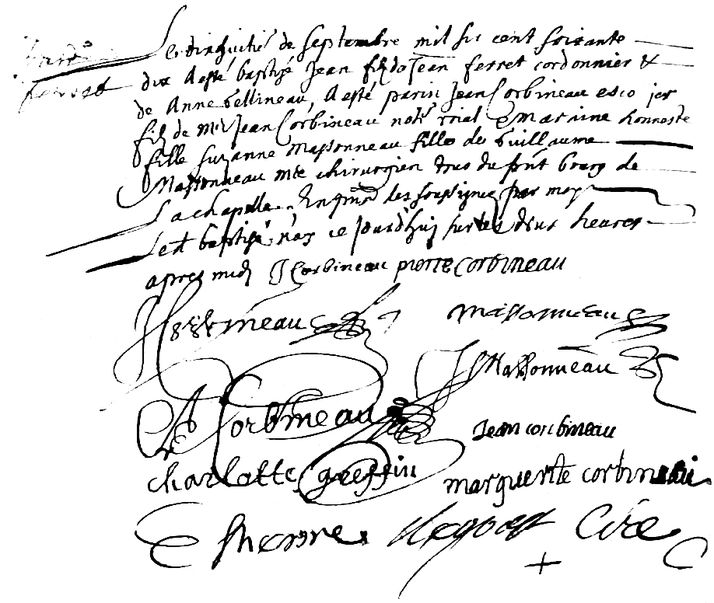 Jean
ferret
Le dixhuitie de Septembre mil six cent soixante
dix a esté baptizé Jean filz de Jean ferret cordonnier &
de Anne bellineau, a esté parin Jean Corbineau escolier
filz de Mtre Jean Corbineau notre roial & maraine honneste
fille Suzanne Massonneau fille de Guillaume
Massonneau mtre chirurgien tous du pont bourg de
La chapelle. En presence des soussignez par moy
Led baptizé nay ce jourdhuy sur les deux heures
apres midy J Corbineau pierre Corbineau
massonneau
S Massonneau
Corbineau
Jean corbineau
charlotte greffin
marguerite corbineau
Curé